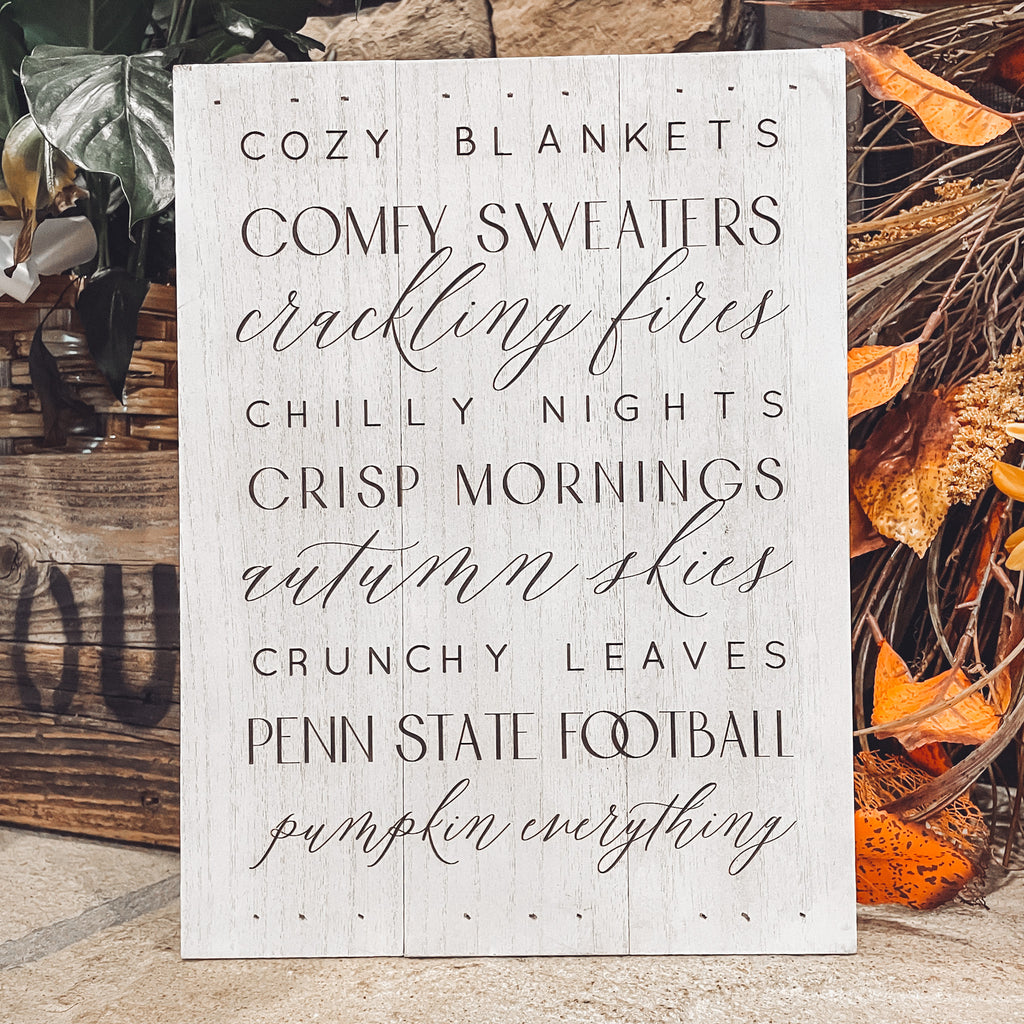 COZY BLANKETS
COMFY SWEATERS
crackling fires
CHILLY NIGHTS
CRISP MORNINGS
autumn skies
CRUNCHY LEAVES
PENN STATE FOOTBALL
pumpkin everything
OU